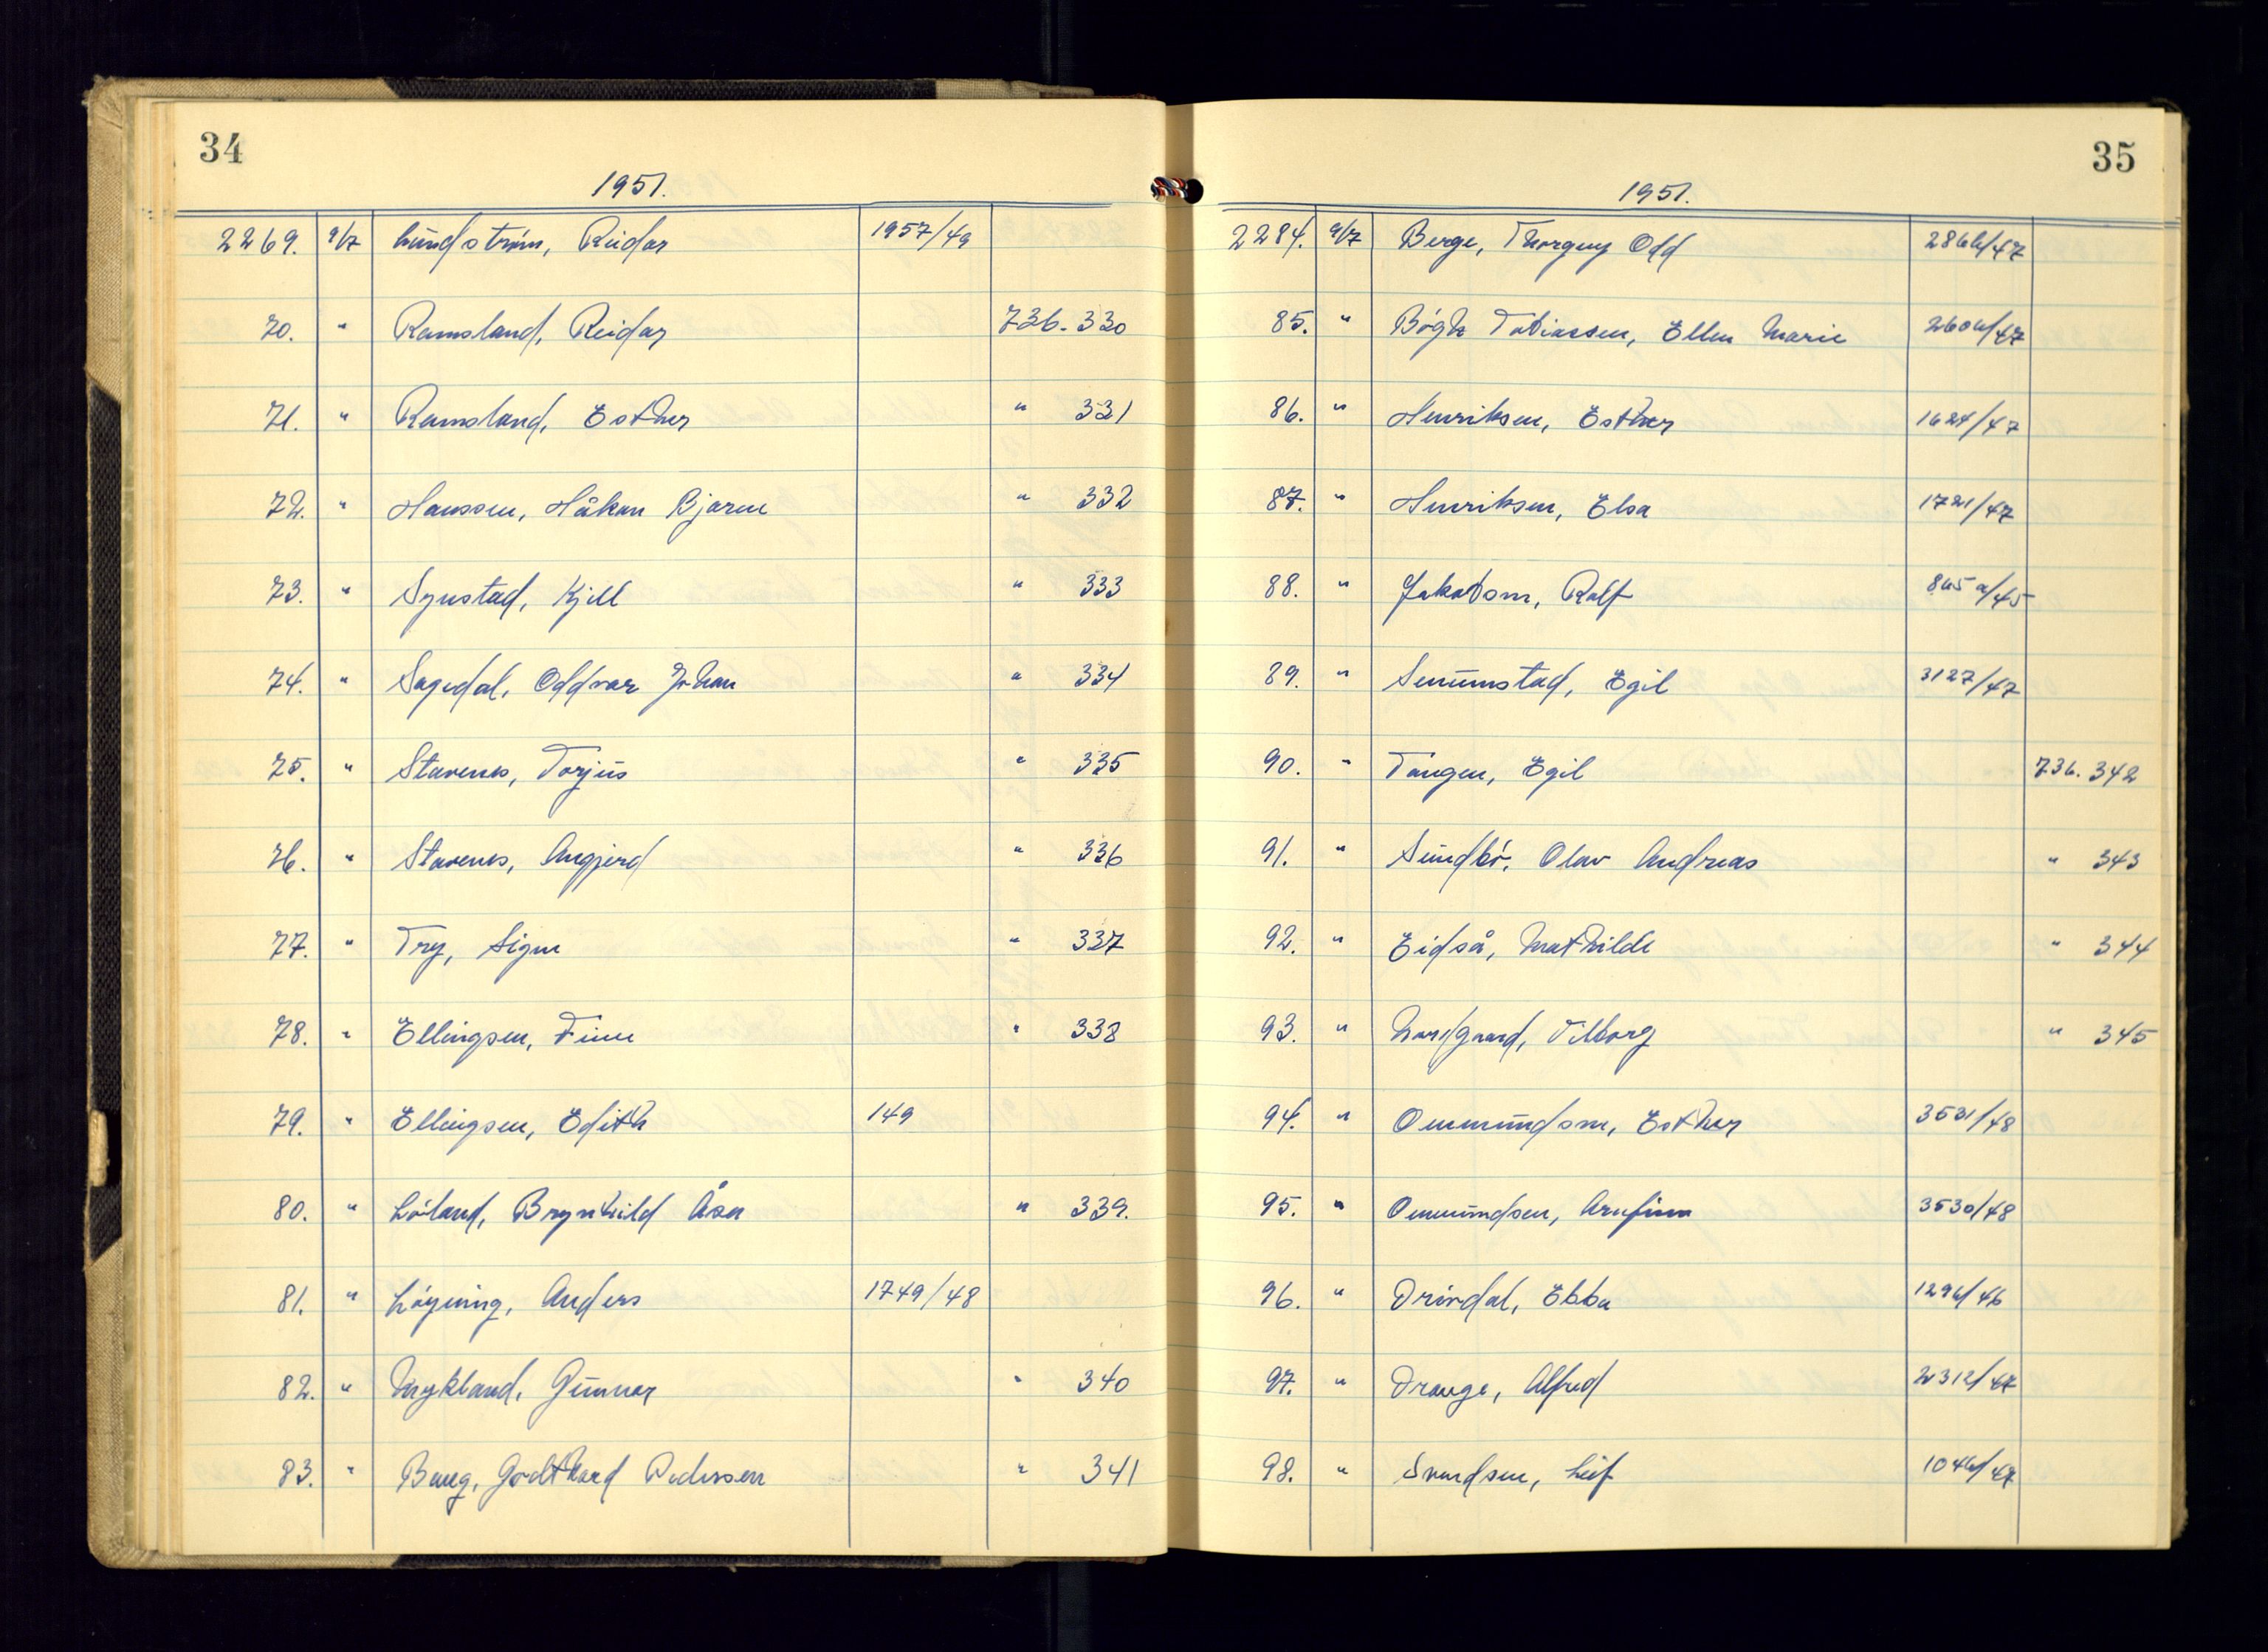 34
1951.
2269. 9/7 Lundström, Reidar 1957/49
70. " Ramsland, Reidar 736.330
71. " Ramsland, Esther " 331
72. " Hanssen, Håkon Bjarne " 332
73. " Synstad, Kjell " 333
74. " Sagedal, Oddvar Johan " 334
75. " Stavenes, Torjus " 335
76. " Stavenes, Angjerd " 336
77. " Try, Signe " 337
78. " Ellingsen, Finn " 338
79. " Ellingsen, Edith 149
80. " Löland, Brynhild Åsa " 339.
81. " Löyning, Anders 1749/48
82. " Mykland, Gunnar " 340
83. " Baug, Godthard Pedersen " 341
35
1951.
2284. 9/7 Berge, Thorguy Odd 2866/47
85. " Bögh Tobiassen, Ellen Marie 2604/47
86. " Henriksen, Esther 1624/47
87. " Henriksen, Elsa 1721/47
88. " Jakobsen, Ralf 845a/45
89. " Senumstad, Egil 3127/47
90. " Tangen, Egil 736.342
91. " Sundbö, Olav Andreas " 343
92. " Eidså, Mathilde " 344
93. " Nordgaard, Vilborg " 345
94. " Ommundsen, Esther 3531/48
95. " Ommundsen, Arnfinn 3530/48
96. " Drivdal, Ebba 1296/46
97. " Drange, Alfred 2312/47
98. " Svendsen, Leif 1046/47